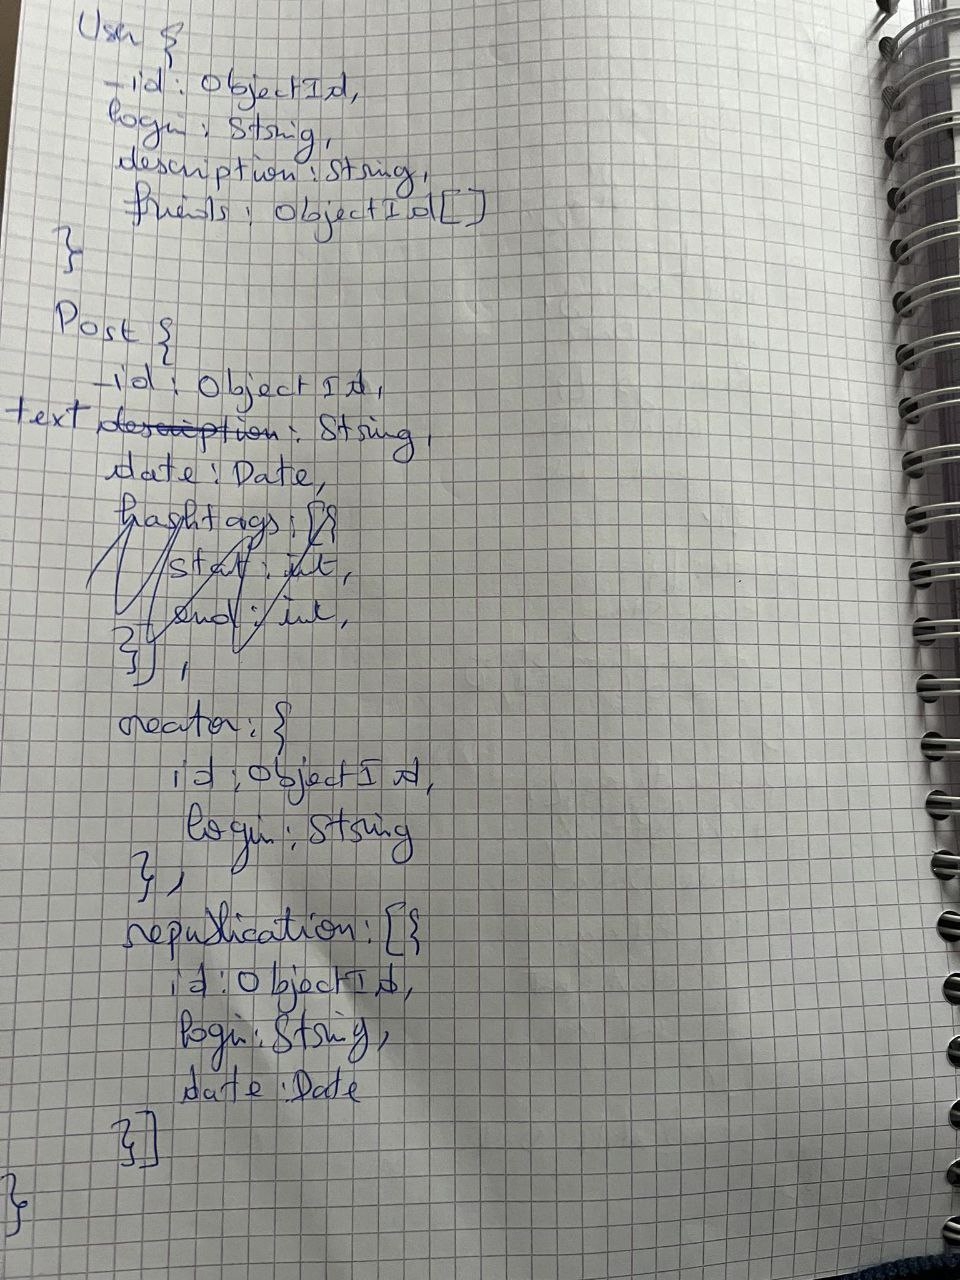 User {
_id : ObjectId,
login : String,
description : String,
friends : ObjectId[]
}
Post {
_id : ObjectId,
text description : String,
date : Date,
hashtags : [{
start : int,
end : int,
}],
creator : {
id : ObjectId,
login : String
},
republication : [{
id : ObjectId,
login : String,
date : Date
}]
}